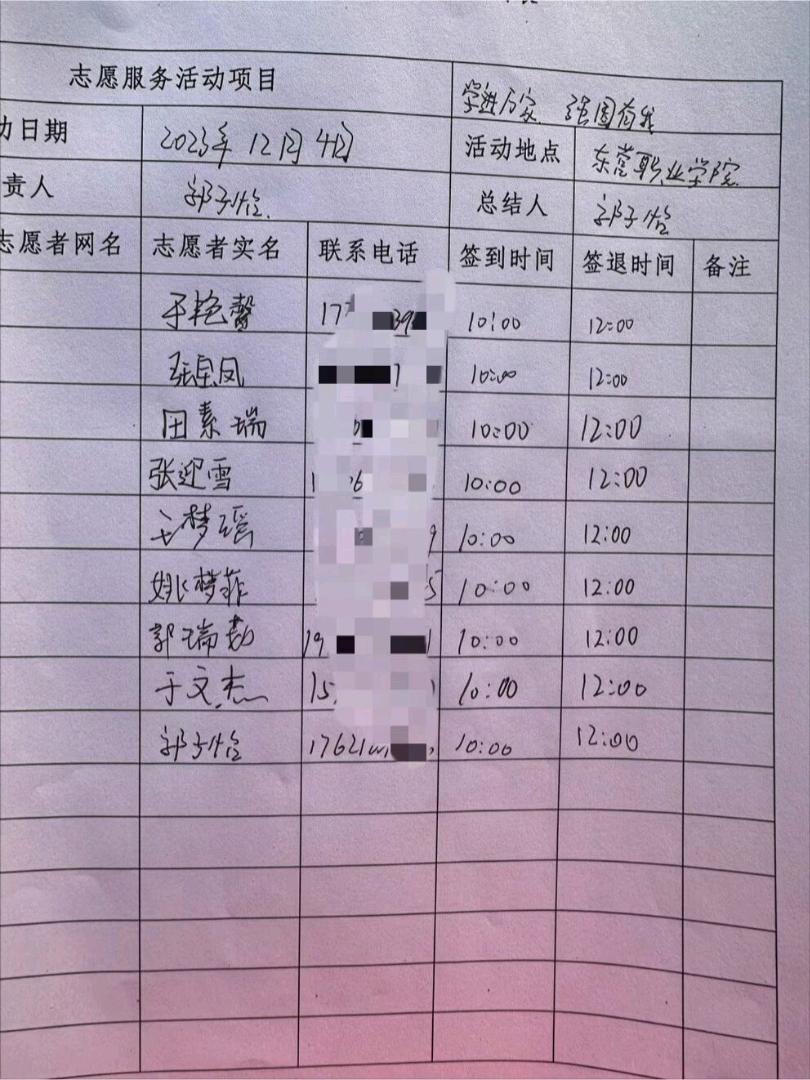 志愿服务活动项目 学进万家 强国有我
动日期 2023年12月4日 活动地点 东营职业学院
责人 郭子怡 总结人 郭子怡
志愿者网名 志愿者实名 联系电话 签到时间 签退时间 备注
于艳馨 17 10:00 12:00
张卓凤 10:00 12:00
田素瑞 10:00 12:00
张迎雪 10:00 12:00
王梦瑶 10:00 12:00
姚梦菲 10:00 12:00
郭瑞勤 19 10:00 12:00
于文杰 15 10:00 12:00
郭子怡 17621 10:00 12:00